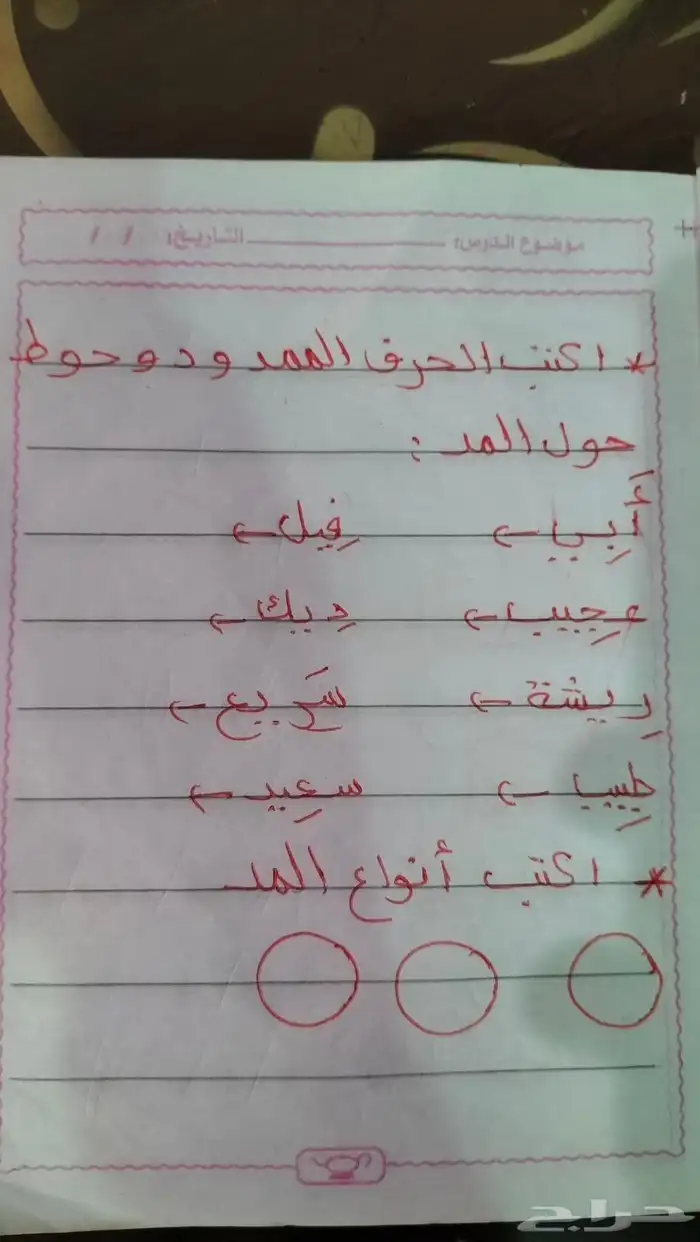 موضوع الدرس: التاريخ: / /
* اكتب الحرف الممدود وحوط
حول المد :
أَبِي ← فِيل ←
عجِيب ← دِيك ←
رِيشة ← سَرِيع ←
طبِيب ← سعِيد ←
* اكتب أنواع المد
حراج